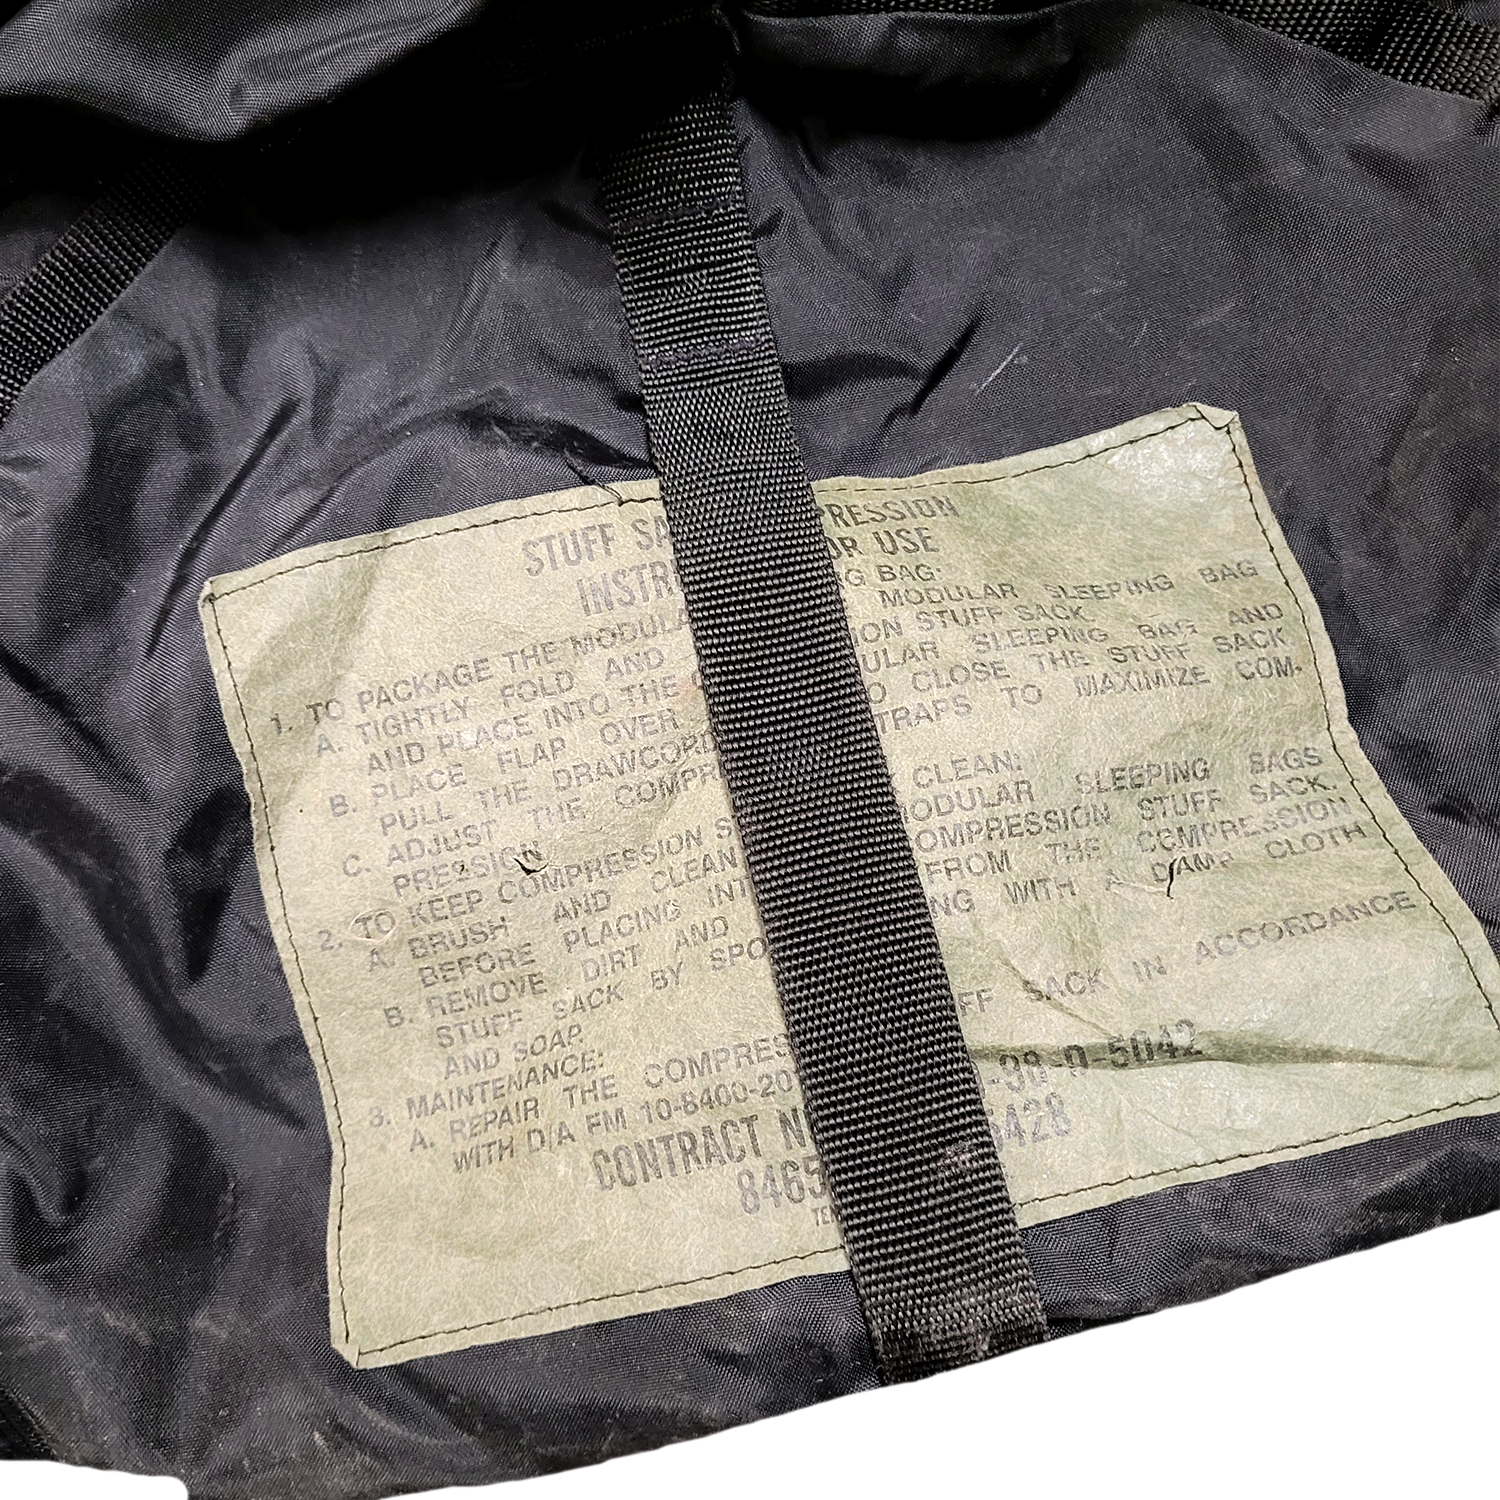 STUFF SA PRESSION
INSTRU OR USE
1. TO PACKAGE THE MODULA G BAG:
A. TIGHTLY FOLD AND MODULAR SLEEPING BAG
AND PLACE INTO THE ION STUFF SACK.
B. PLACE FLAP OVER ULAR SLEEPING BAG AND
PULL THE DRAWCORD O CLOSE THE STUFF SACK
C. ADJUST THE COMPR TRAPS TO MAXIMIZE COM-
PRESSION
2. TO KEEP COMPRESSION S CLEAN:
A. BRUSH AND CLEAN ODULAR SLEEPING BAGS
BEFORE PLACING INT OMPRESSION STUFF SACK.
B. REMOVE DIRT AND FROM THE COMPRESSION
STUFF SACK BY SPO NG WITH A DAMP CLOTH
AND SOAP.
3. MAINTENANCE:
A. REPAIR THE COMPRES FF SACK IN ACCORDANCE
WITH D/A FM 10-8400-20
CONTRACT N -98-D-5042
8465 5428